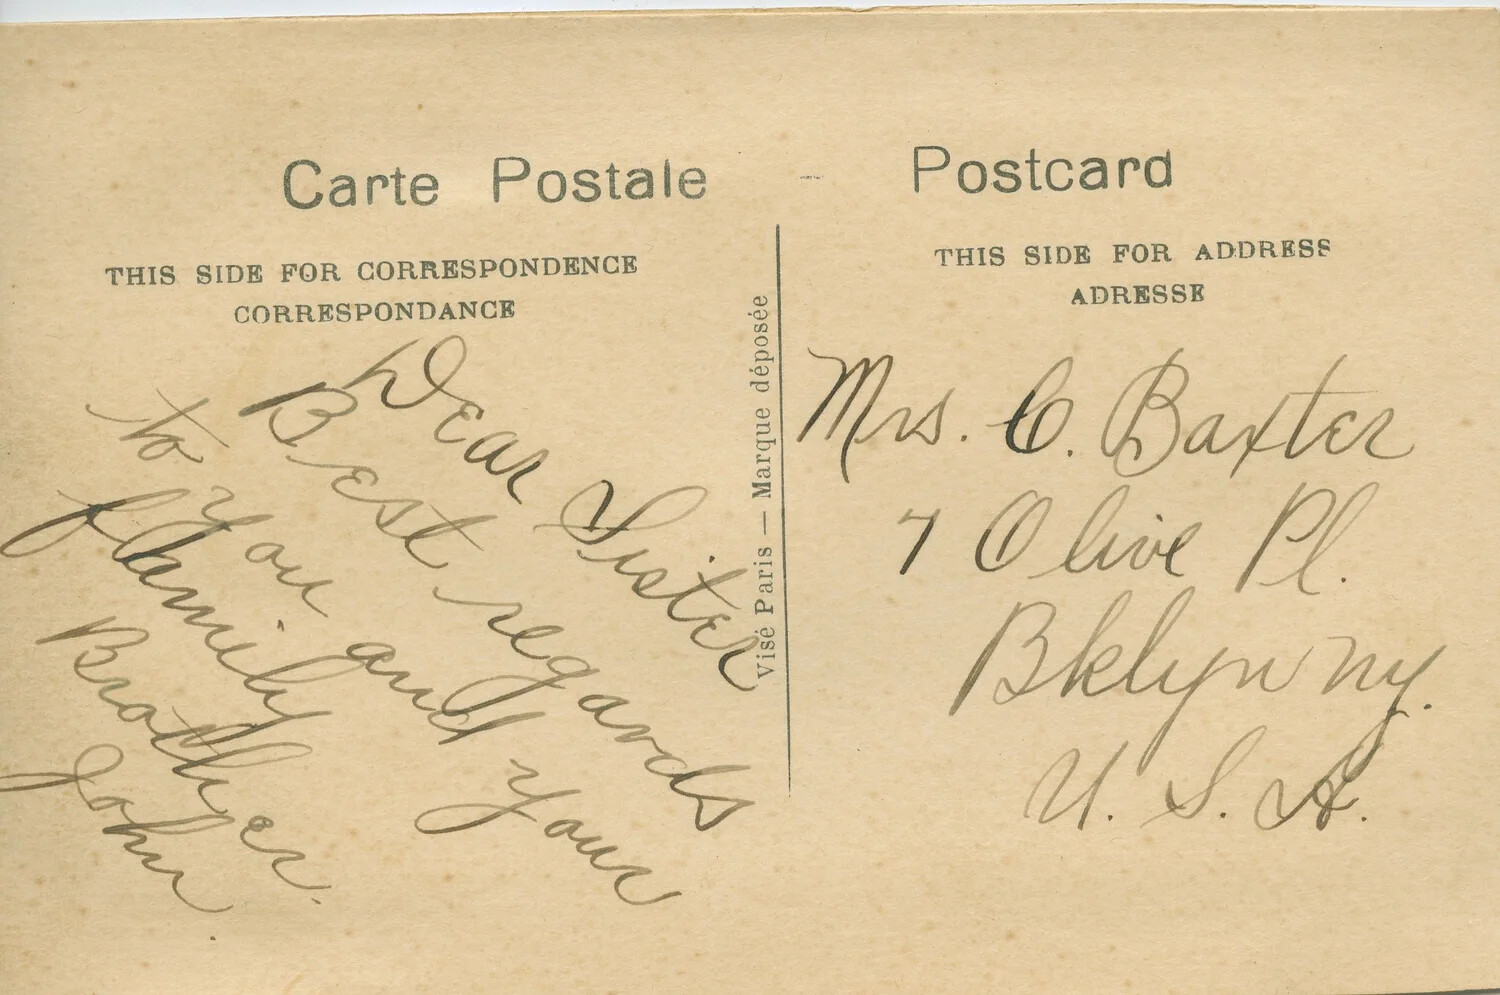 Carte Postale - Postcard
THIS SIDE FOR CORRESPONDENCE
CORRESPONDANCE
THIS SIDE FOR ADDRESS
ADRESSE
Dear Sister
Best regards
to you and your
family
Brother
John
Visé Paris — Marque déposée
Mrs. C. Baxter
7 Olive Pl.
Bklyn NY.
U. S. A.